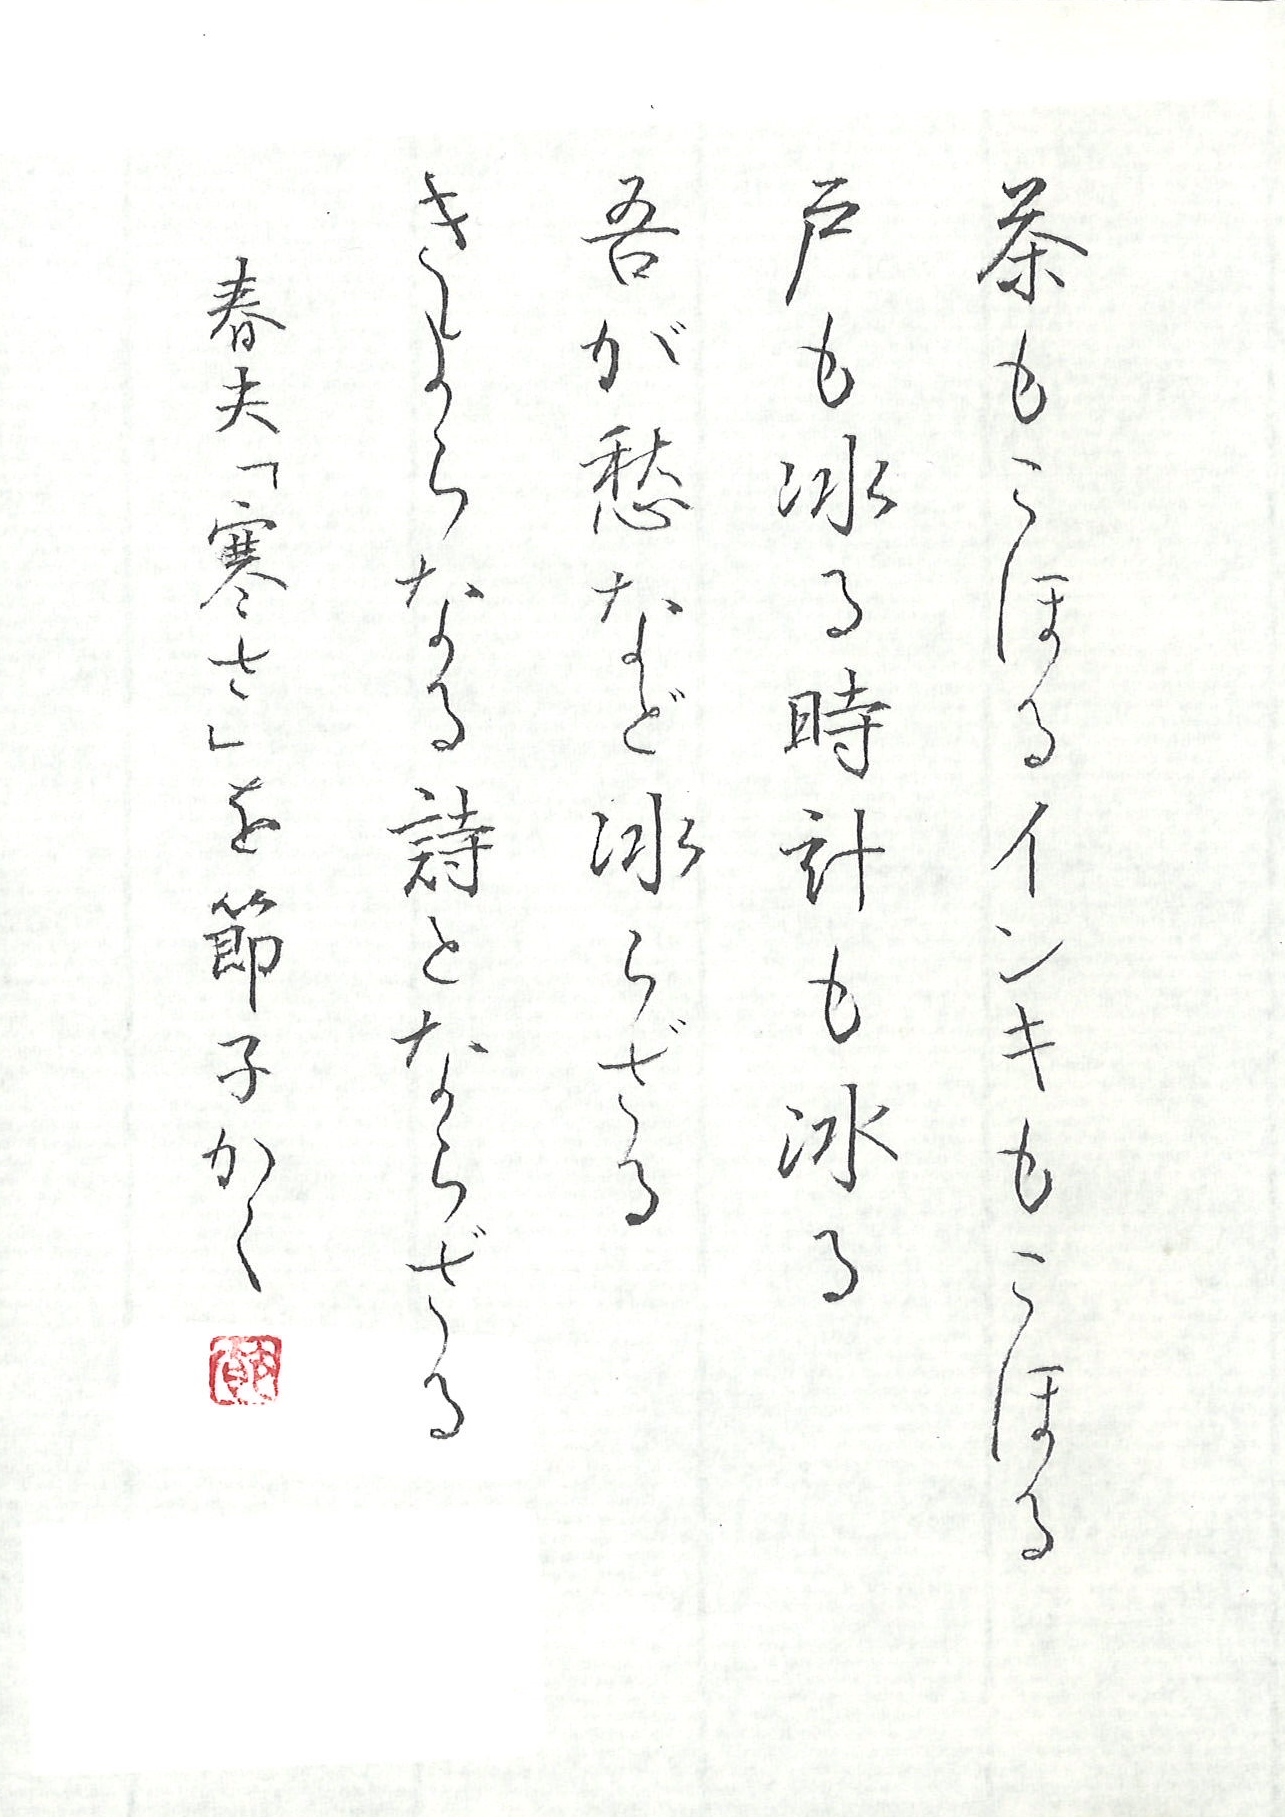 茶もこほるインキもこほる
戸も冰る時計も冰る
吾が愁など冰らざる
きよらなる詩とならざる
春夫「寒さ」を節子かく
節